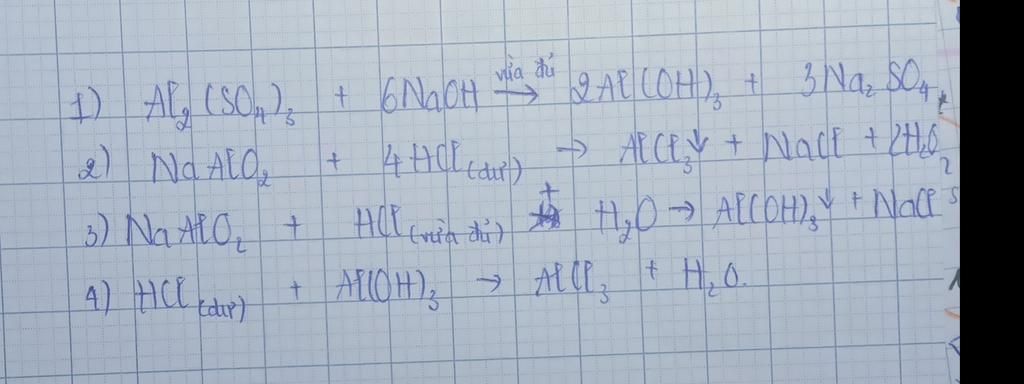 1) Al₂(SO₄)₃ + 6NaOH vừa đủ → 2Al(OH)₃ + 3Na₂SO₄
2) NaAlO₂ + 4HCl (dư) → AlCl₃↓ + NaCl + 2H₂O
3) NaAlO₂ + HCl (vừa đủ) + H₂O → Al(OH)₃↓ + NaCl
4) HCl (dư) + Al(OH)₃ → AlCl₃ + H₂O.